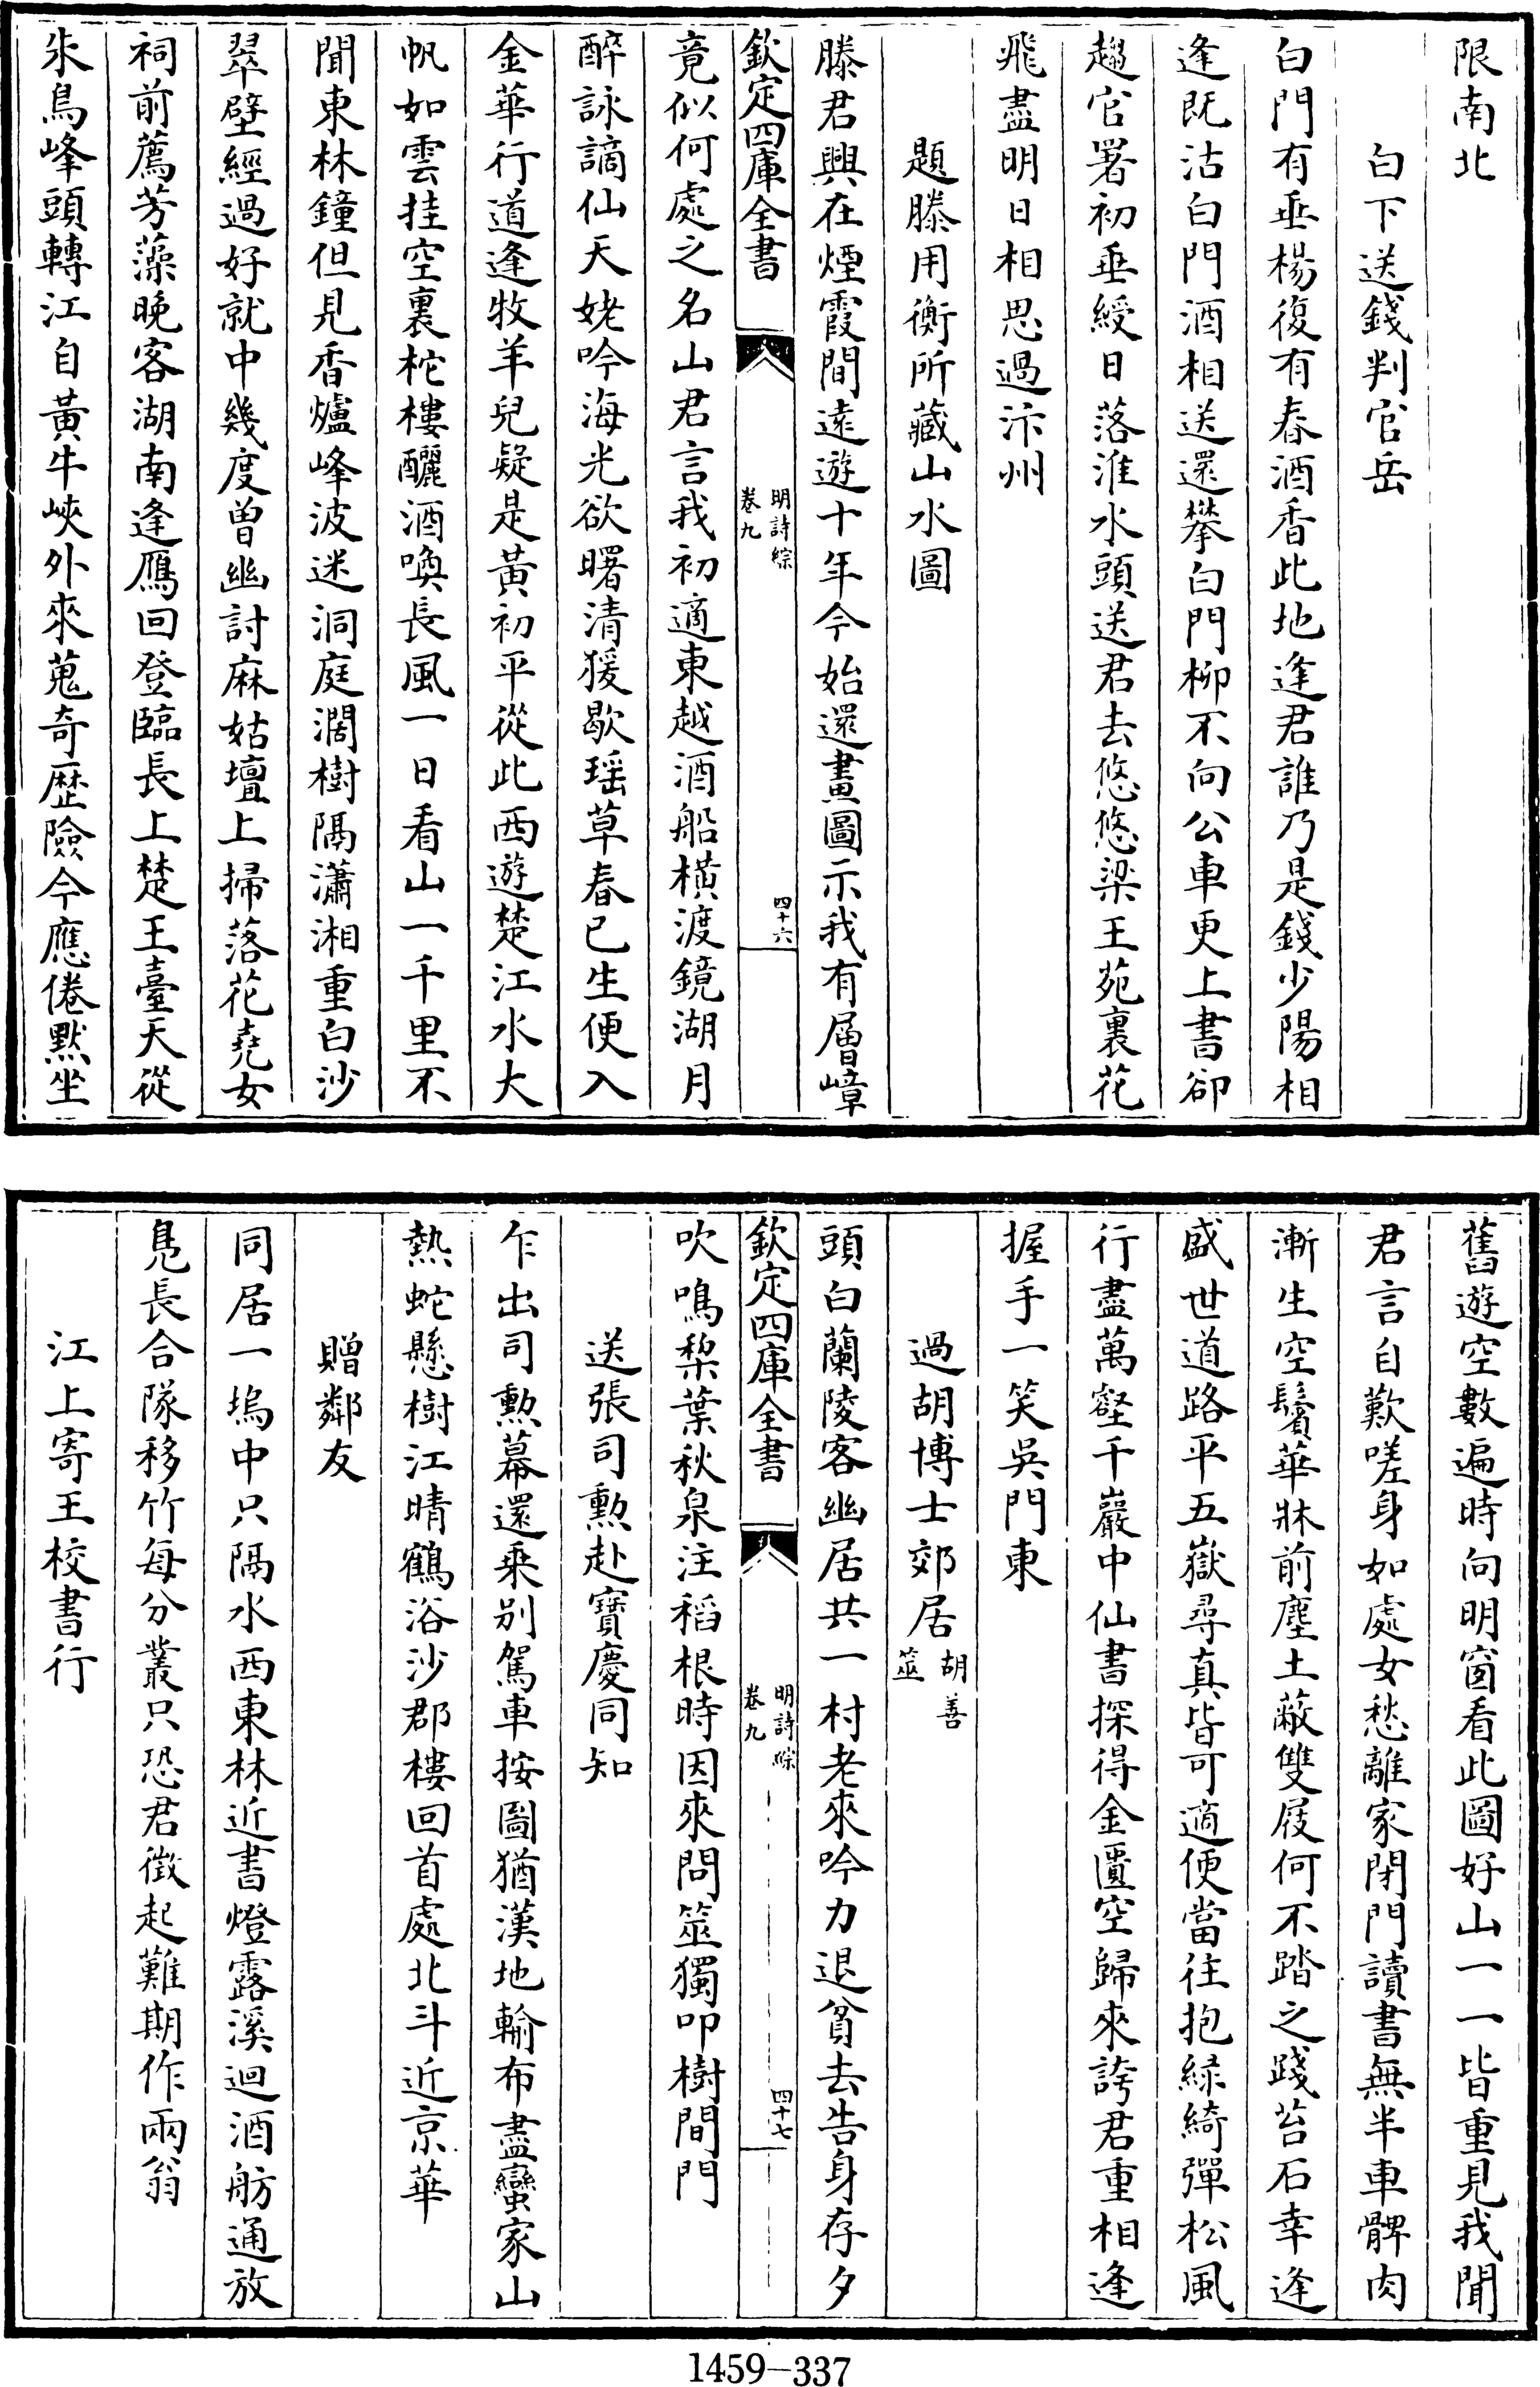 限南北
白下送錢判官岳
白門有垂楊復有春酒香此地逢君誰乃是錢少陽相
逢既沽白門酒相送還攀白門栁不向公車更上書卻
趨官署初垂綬日落淮水頭送君去悠悠梁王苑裏花
飛盡明日相思過汴州
題滕用衡所藏山水圖
滕君興在煙霞間遠遊十年今始還畫圖示我有層嶂
欽定四庫全書
明詩綜
卷九
四十六
竟似何處之名山君言我初適東越酒船橫渡鏡湖月
醉詠謫仙天姥吟海光欲曙清猨歇瑶草春已生便入
金華行道逢牧羊兒疑是黃初平從此西遊楚江水大
帆如雲挂空裏柁樓釃酒喚長風一日看山一千里不
聞東林鐘但見香爐峰波迷洞庭濶樹隔瀟湘重白沙
翠壁經過好就中幾度曽幽討麻姑壇上掃落花堯女
祠前薦芳藻晚客湖南逢鴈回登臨長上楚王臺天從
朱鳥峰頭轉江自黃牛峽外來蒐奇歴險今應倦黙坐
舊遊空數遍時向明窗看此圖好山一一皆重見我聞
君言自歎嗟身如處女愁離家閉門讀書無半車髀肉
漸生空鬢華牀前塵土蔽雙屐何不踏之踐苔石幸逢
盛世道路平五嶽尋真皆可適便當往抱緑綺彈松風
行盡萬壑千巖中仙書探得金匱空歸來誇君重相逢
握手一笑吳門東
過胡博士郊居
胡善
筮
頭白蘭陵客幽居共一村老來吟力退貧去告身存夕
欽定四庫全書
明詩綜
卷九
四十七
吹鳴棃葉秋泉注稻根時因來問筮獨叩樹間門
送張司勲赴寶慶同知
乍出司勲幕還乘别駕車按圖猶漢地輸布盡蠻家山
熱蛇懸樹江晴鶴浴沙郡樓回首處北斗近京華
贈鄰友
同居一塢中只隔水西東林近書燈露溪迴酒舫通放
鳧長合隊移竹每分叢只恐君徵起難期作兩翁
江上寄王校書行
1459-337